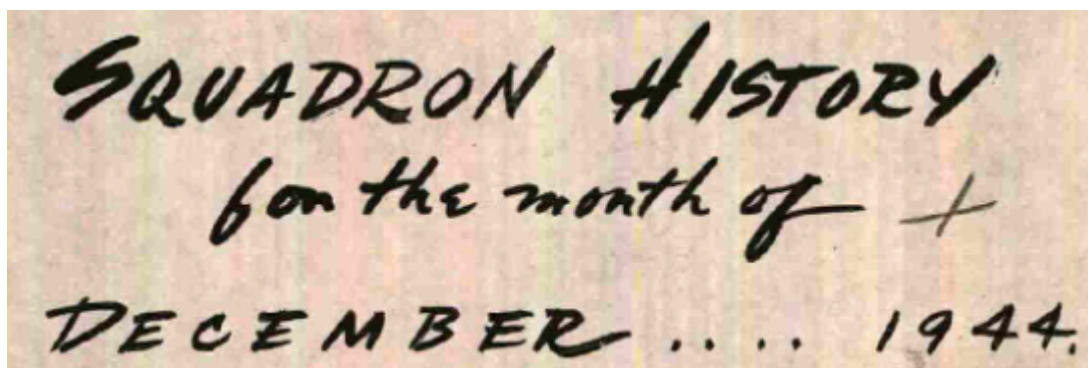 SQUADRON HISTORY
for the month of +
DECEMBER .... 1944.